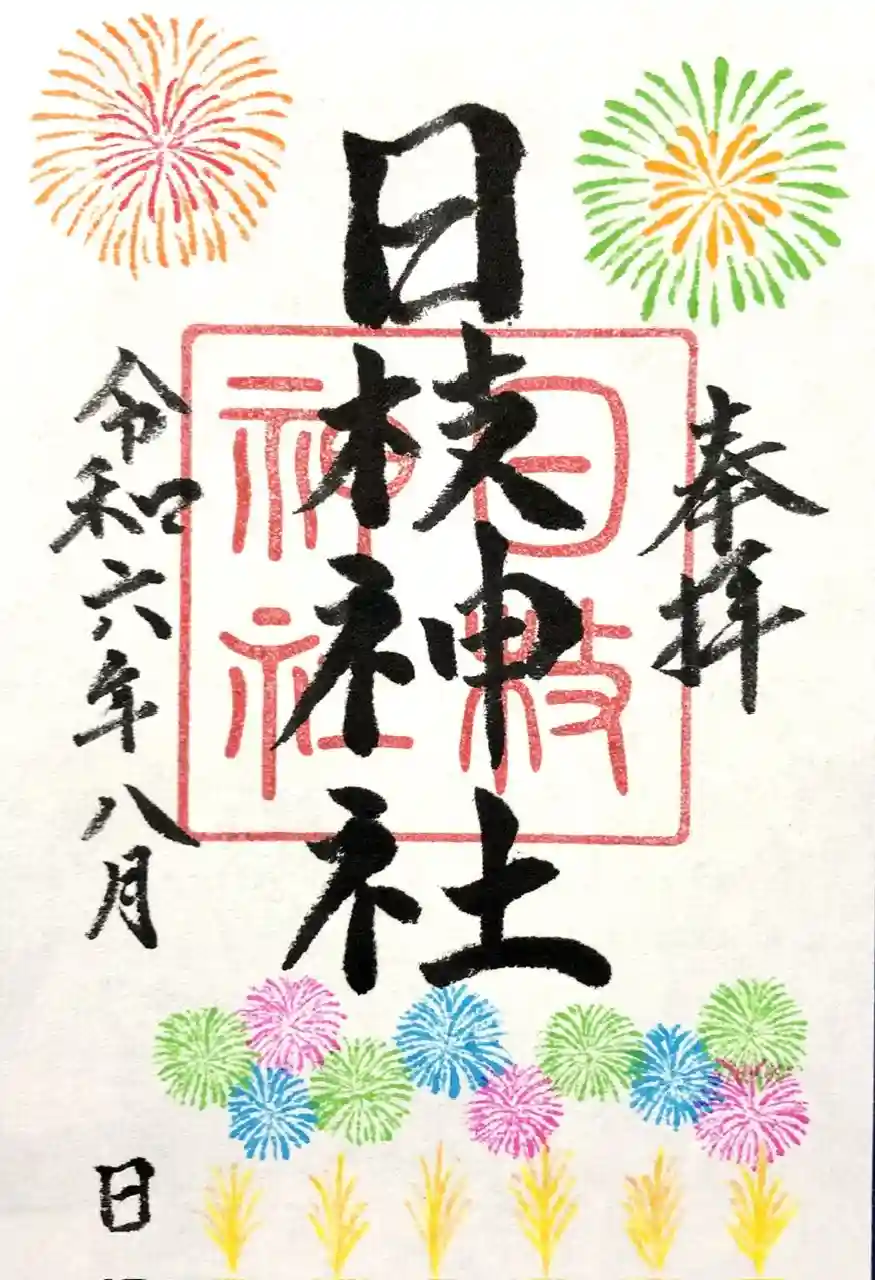 奉拝
日枝神社
日枝
神社
令和六年八月
日